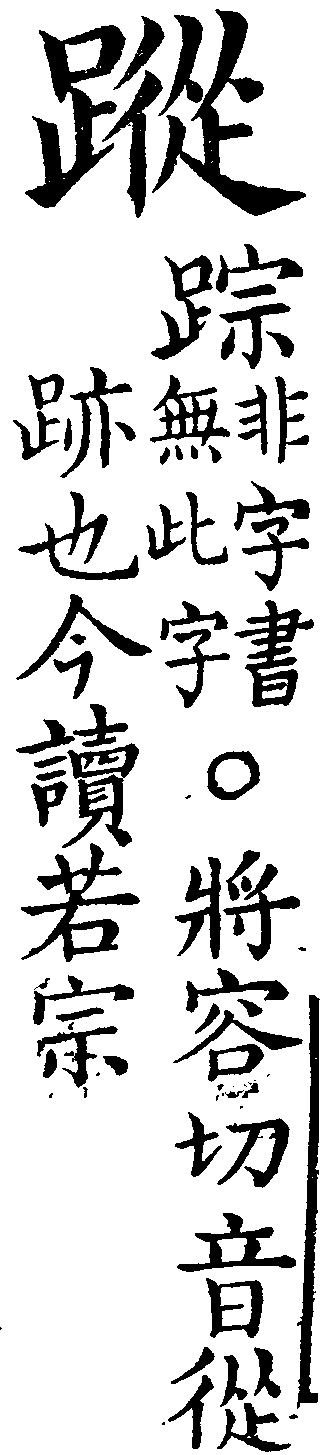 蹤
踪
非字書
無此字
○將容切音從
跡也今讀若宗